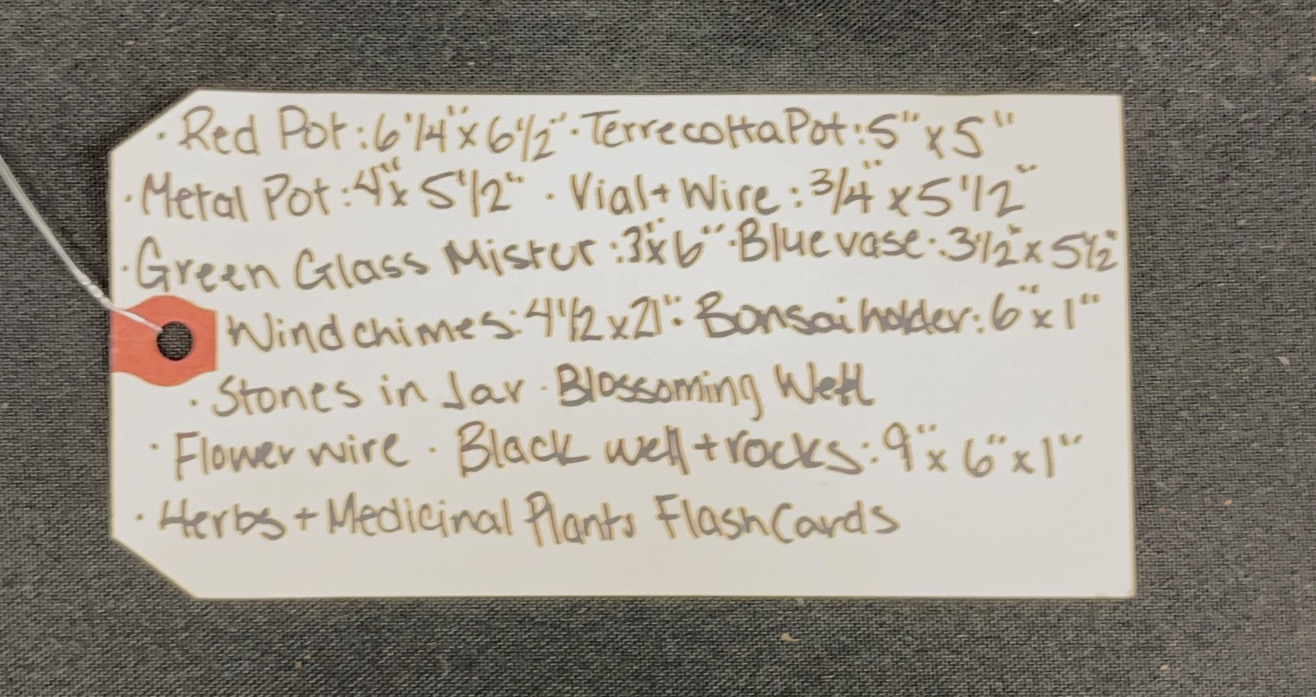 · Red Pot: 6 1/4" x 6 1/2" · Terrecotta Pot: 5" x 5"
· Metal Pot: 4" x 5 1/2" · Vial + Wire: 3/4" x 5 1/2"
· Green Glass Mister: 3" x 6" · Blue vase: 3 1/2" x 5 1/2"
Windchimes: 4 1/2 x 21" · Bonsai holder: 6" x 1"
· Stones in Jar · Blossoming Well
· Flower wire · Black well + rocks: 9" x 6" x 1"
· Herbs + Medicinal Plants Flash Cards